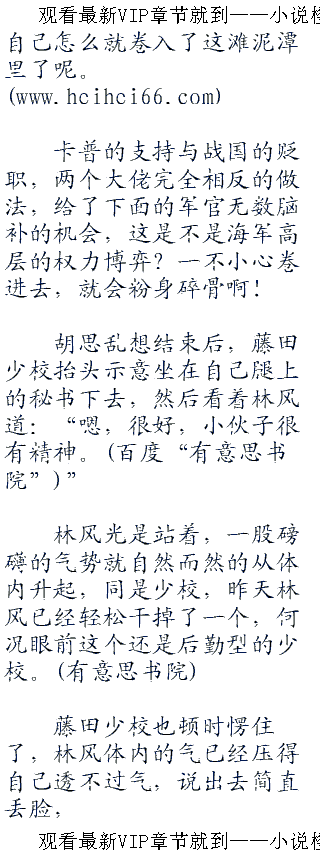 观看最新VIP章节就到——小说
自己怎么就卷入了这滩泥潭
里了呢。
(www.hcihci66.com)
卡普的支持与战国的贬
职，两个大佬完全相反的做
法，给了下面的军官无数脑
补的机会，这是不是海军高
层的权力博弈？一不小心卷
进去，就会粉身碎骨啊！
胡思乱想结束后，藤田
少校抬头示意坐在自己腿上
的秘书下去，然后看着林风
道：“嗯，很好，小伙子很
有精神。(百度“有意思书
院”)”
林风光是站着，一股磅
礴的气势就自然而然的从体
内升起，同是少校，昨天林
风已经轻松干掉了一个，何
况眼前这个还是后勤型的少
校。(有意思书院)
藤田少校也顿时愣住
了，林风体内的气已经压得
自己透不过气，说出去简直
丢脸，
观看最新VIP章节就到——小说